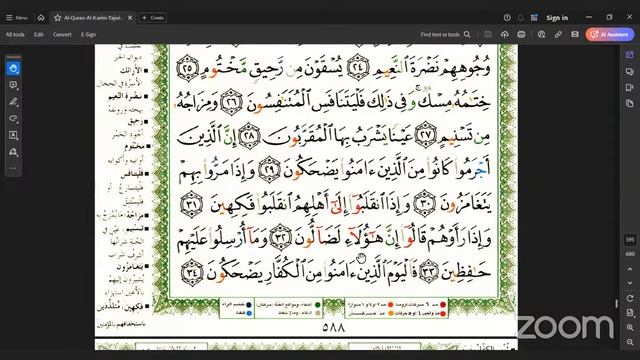 Menu
Al-Quran-Al-Karim-Tajwi...
+ Create
Sign in
All tools
Edit
Convert
E-Sign
Find text or tools
AI Assistant
وُجُوهِهِمْ نَضْرَةَ ٱلنَّعِيمِ ٢٤ يُسْقَوْنَ مِن رَّحِيقٍ مَّخْتُومٍ ٢٥
خِتَٰمُهُۥ مِسْكٌ ۚ وَفِى ذَٰلِكَ فَلْيَتَنَافَسِ ٱلْمُتَنَٰفِسُونَ ٢٦ وَمِزَاجُهُۥ
مِن تَسْنِيمٍ ٢٧ عَيْنًا يَشْرَبُ بِهَا ٱلْمُقَرَّبُونَ ٢٨ إِنَّ ٱلَّذِينَ
أَجْرَمُوا۟ كَانُوا۟ مِنَ ٱلَّذِينَ ءَامَنُوا۟ يَضْحَكُونَ ٢٩ وَإِذَا مَرُّوا۟ بِهِمْ
يَتَغَامَزُونَ ٣٠ وَإِذَا ٱنقَلَبُوٓا۟ إِلَىٰٓ أَهْلِهِمُ ٱنقَلَبُوا۟ فَكِهِينَ ٣١
وَإِذَا رَأَوْهُمْ قَالُوٓا۟ إِنَّ هَٰٓؤُلَآءِ لَضَآلُّونَ ٣٢ وَمَآ أُرْسِلُوا۟ عَلَيْهِمْ
حَٰفِظِينَ ٣٣ فَٱلْيَوْمَ ٱلَّذِينَ ءَامَنُوا۟ مِنَ ٱلْكُفَّارِ يَضْحَكُونَ ٣٤
الأرائك
نضرة النعيم
رحيق
مختوم
فليتنافس
مزاجه
تسنيم
يتغامزون
فكهين
٥٨٨
595
680
zoom